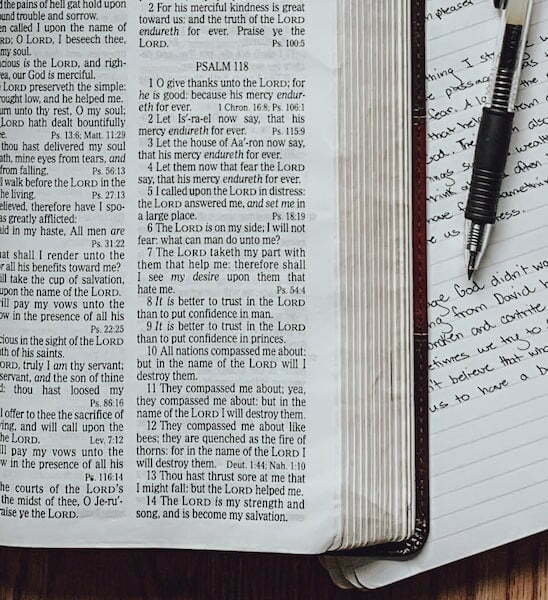 the pains of hell gat hold upon
und trouble and sorrow.
en called I upon the name of
RD; O LORD, I beseech thee,
my soul.
cious is the LORD, and right-
ea, our God is merciful.
LORD preserveth the simple:
rought low, and he helped me.
urn unto thy rest, O my soul;
LORD hath dealt bountifully
ee. Ps. 13:6; Matt. 11:29
thou hast delivered my soul
ath, mine eyes from tears, and
from falling. Ps. 56:13
I walk before the LORD in the
he living. Ps. 27:13
elieved, therefore have I spo-
as greatly afflicted:
aid in my haste, All men are
Ps. 31:22
hat shall I render unto the
r all his benefits toward me?
ill take the cup of salvation,
upon the name of the LORD.
ill pay my vows unto the
ow in the presence of all his
Ps. 22:25
cious in the sight of the LORD
th of his saints.
ORD, truly I am thy servant;
servant, and the son of thine
d: thou hast loosed my
Ps. 86:16
l offer to thee the sacrifice of
ving, and will call upon the
he LORD. Lev. 7:12
ill pay my vows unto the
w in the presence of all his
Ps. 116:14
he courts of the LORD'S
the midst of thee, O Je-ru'-
raise ye the LORD.
2 For his merciful kindness is great
toward us: and the truth of the LORD
endureth for ever. Praise ye the
LORD. Ps. 100:5
PSALM 118
1 O give thanks unto the LORD; for
he is good: because his mercy endur-
eth for ever. 1 Chron. 16:8, Ps. 106:1
2 Let Is'-ra-el now say, that his
mercy endureth for ever. Ps. 115:9
3 Let the house of Aa'-ron now say,
that his mercy endureth for ever.
4 Let them now that fear the LORD
say, that his mercy endureth for ever.
5 I called upon the LORD in distress:
the LORD answered me, and set me in
a large place. Ps. 18:19
6 The LORD is on my side; I will not
fear: what can man do unto me?
7 The LORD taketh my part with
them that help me: therefore shall
I see my desire upon them that
hate me. Ps. 54:4
8 It is better to trust in the LORD
than to put confidence in man.
9 It is better to trust in the LORD
than to put confidence in princes.
10 All nations compassed me about:
but in the name of the LORD will I
destroy them.
11 They compassed me about; yea,
they compassed me about: but in the
name of the LORD I will destroy them.
12 They compassed me about like
bees; they are quenched as the fire of
thorns: for in the name of the LORD I
will destroy them. Deut. 1:44; Nah. 1:10
13 Thou hast thrust sore at me that
I might fall: but the LORD helped me.
14 The LORD is my strength and
song, and is become my salvation.
pleases
thing I
passag
that
God. The also
have something
God didn't wa
from David
broken and contrite
try to
believe that wh
us to have a b